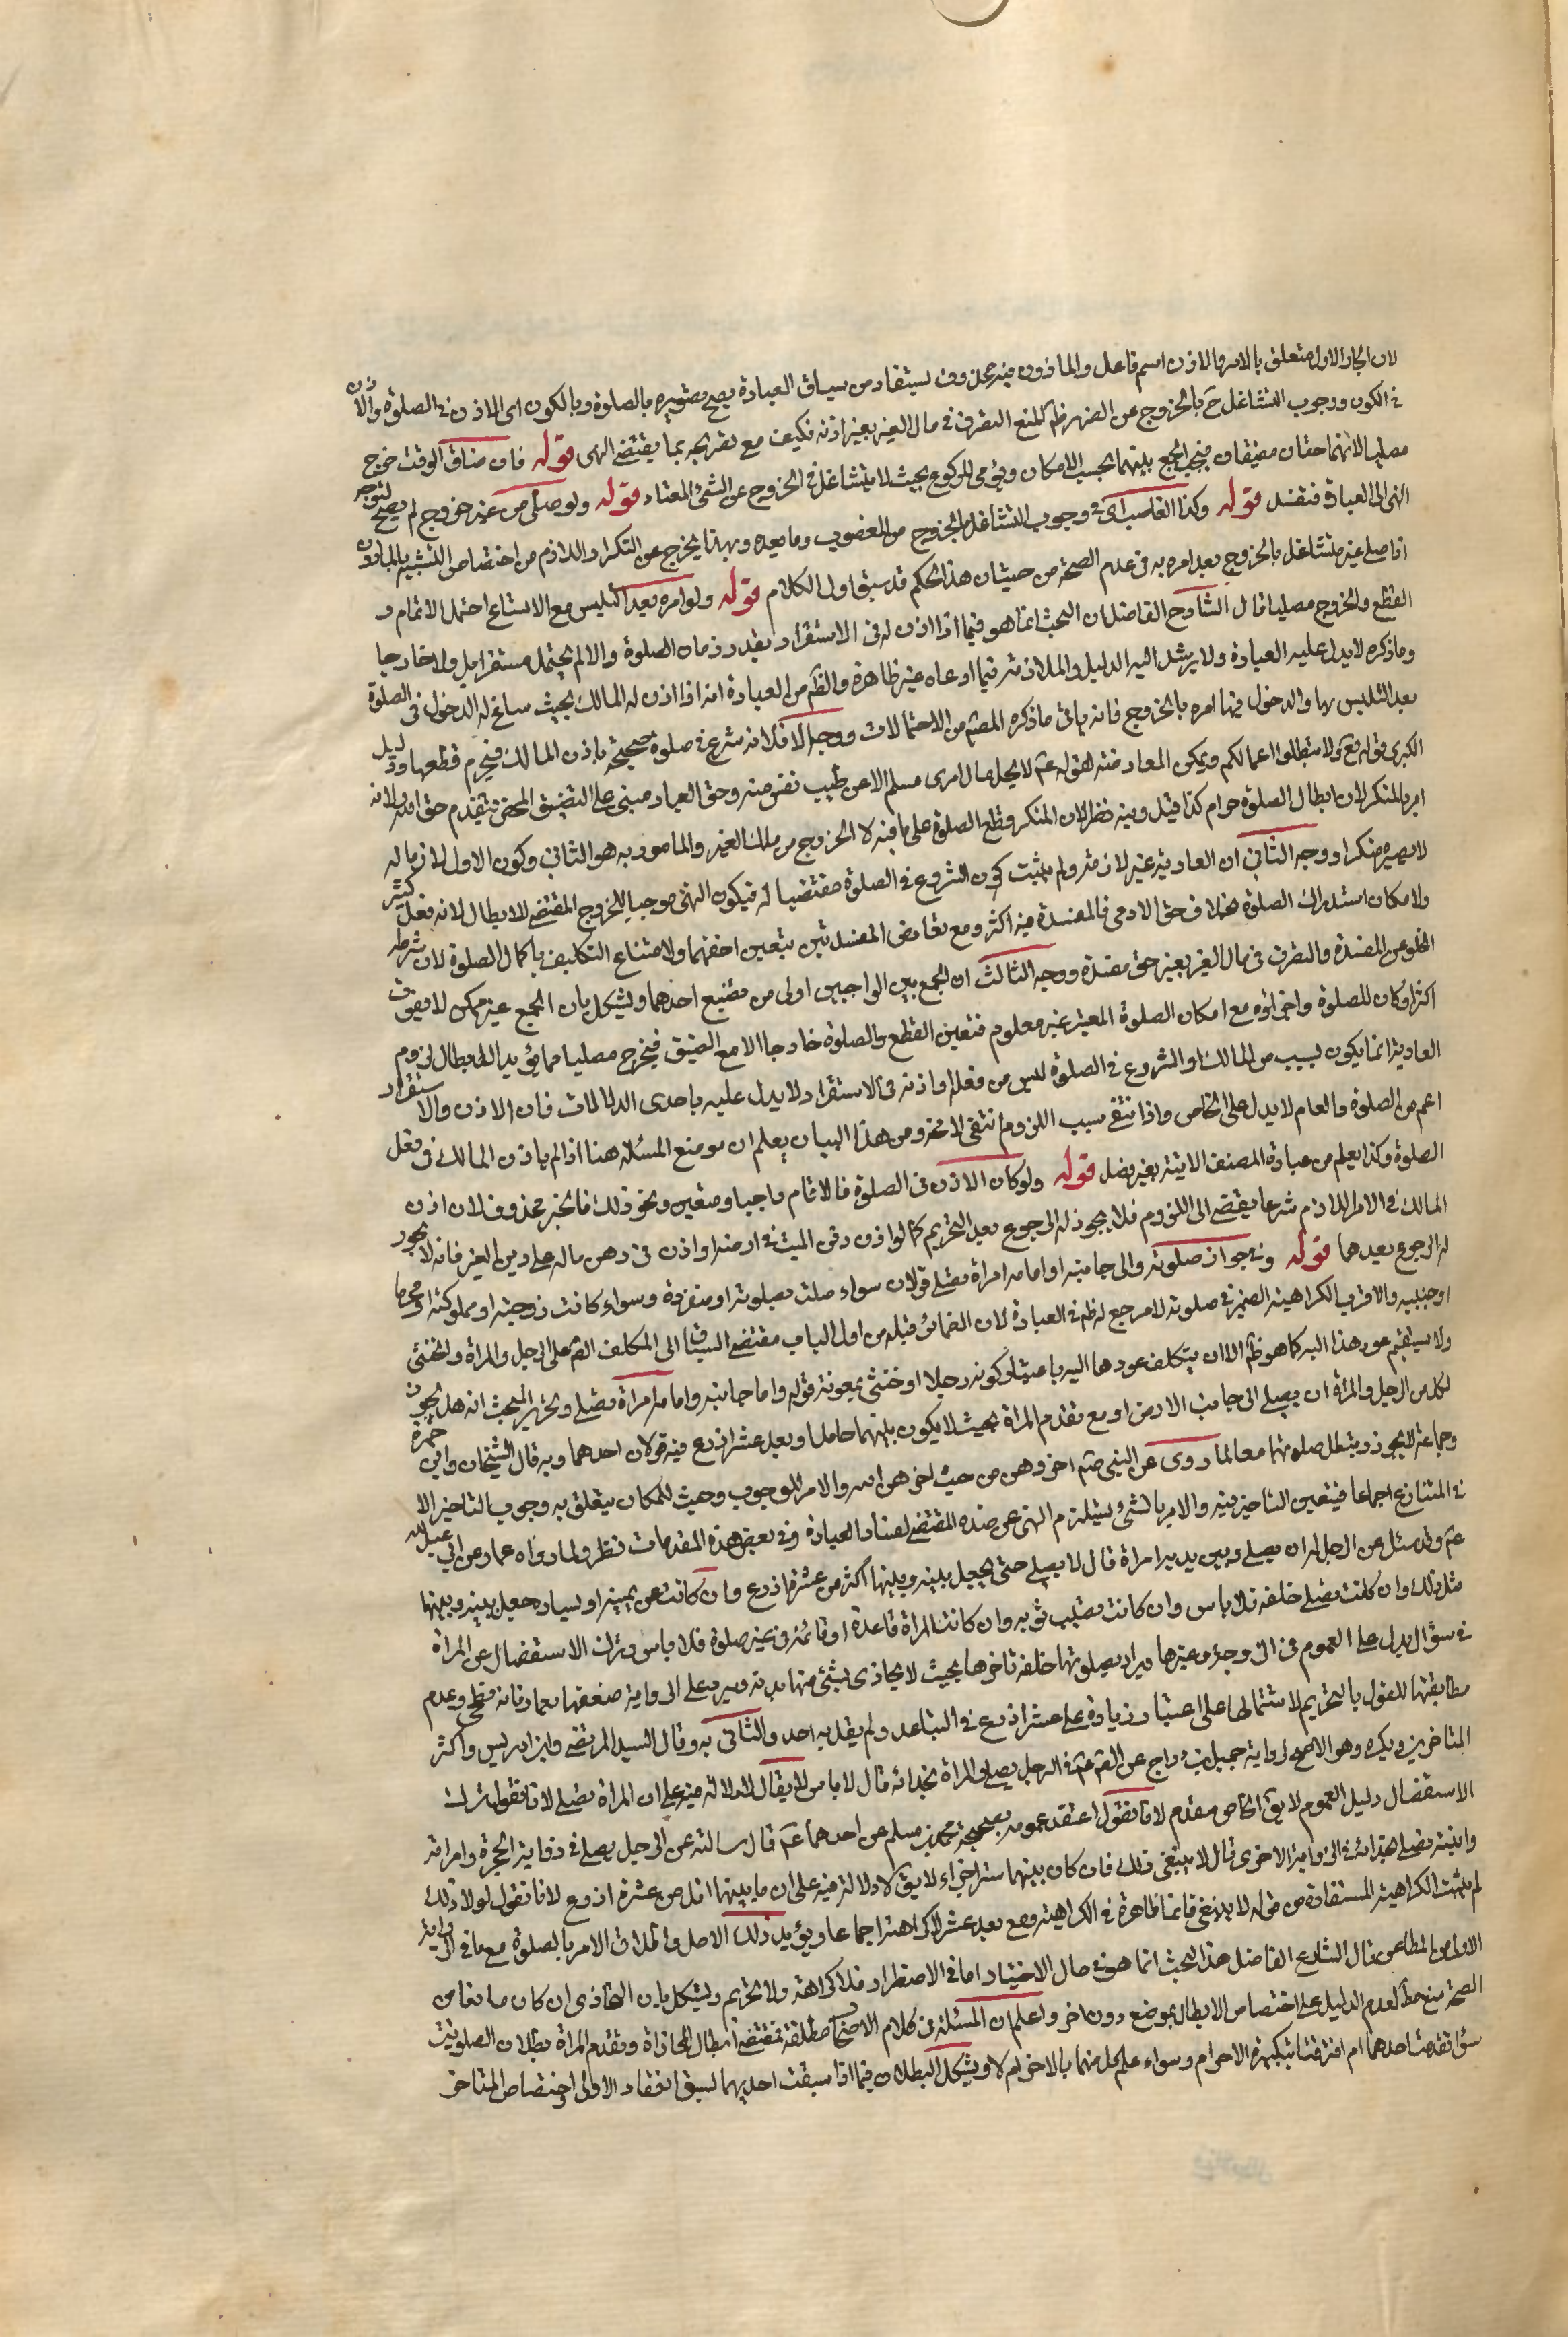 لان الجار الاول متعلق بالامر والاذن اسم فاعل والماذون فيه محذوف يستفاد من سياق العبادة يصح تصويره بالصلوة وبالكون اى الاذن فى الصلوة والاذن
فى الكون ووجوب التشاغل ح بالخروج عن الضهر ظ لمنع التصرف فى مال الغير بغير اذنه فكيف مع تصريحه بما يقتضى النهى قوله فان ضاق الوقت خرج
مصليا لانهما حقان مضيقان فيجب الجمع بينهما بحسب الامكان ويؤمى للركوع بحيث لا يتشاغل فى الخروج عن المشى المعتاد قوله ولو صلى من غير خروج لم يصح لتوجه
النهى الى العبادة فتفسد قوله وكذا الغاصب اى فى وجوب التشاغل بالخروج من المغصوب وما بعده وبهذا يخرج عن التكرار واللازم من اختصاص التشبيه بالماذون
اذا صلى غير متشاغل بالخروج بعد امره به فى عدم الصحة من حيث ان هذا الحكم قد سبق اول الكلام قوله ولو امره بعد التلبس مع الاتساع احتمل الاتمام و
القطع والخروج مصليا قال الشارح الفاضل ان البحث انما هو فيما اذا اذن له فى الاستقرار بقدر زمان الصلوة والا لم يحتمل مستقرا بل ولا خارجا
وما ذكره لا يدل عليه العبادة ولا يرشد اليه الدليل والملازمة فيما ادعاه غير ظاهرة والظ من العبادة انه اذا اذن له المالك بحيث ساغ له الدخول فى الصلوة
بعد التلبس بها والدخول فيها امره بالخروج فانه ياتى ماذكره المصنف من الاحتمالات ووجه الاول انه شرع فى صلوة صحيحة باذن المالك فيحرم قطعها ودليل
الكبرى قوله تع ولا تبطلوا اعمالكم ويمكن المعارضة بقوله عم لا يحل مال امرئ مسلم الا عن طيب نفس منه وحق العباد مبنى على التضيق المحض فيقدم حق الله ولانه
امر بالمنكر لان ابطال الصلوة حرام كذا قيل وفيه نظر لان المنكر قطع الصلوة على ما فيه لا الخروج من ملك الغير والمامور به هو الثانى وكون الاول لازما له
لا يصيره منكرا ووجه الثانى ان العادية غير لازمة ولم يثبت كون الشروع فى الصلوة مقتضيا له فيكون النهى موجبا للخروج المقتضى للابطال لانه فعل كثير
ولامكان استدراك الصلوة بخلاف حق الادمى فالمفسدة فيه اكثر ومع تعارض المفسدتين يتعين اخفهما ولامتناع التكليف باكمال الصلوة لان شرطه
الخلو عن المفسدة والتصرف فى مال الغير بغير حق مفسدة ووجه الثالث ان الجمع بين الواجبين اولى من تضييع احدهما ويشكل بان الجمع غير ممكن لا يفوت
اكثر اركان للصلوة واجزائه مع امكان الصلوة المعتبر غير معلوم فتعين القطع والصلوة خارجا الا مع الضيق فيخرج مصليا مما يؤيد الابطال لزوم
العادية انما يكون لسبب من المالك والشروع فى الصلوة ليس من فعله واذنه فى الاستقرار لا يدل عليه باحدى الدلالات فان الاذن والاستقرار
اعم من الصلوة والعام لا يدل على الخاص واذا انتفى سبب اللزوم انتفى لا محة ومن هذا البيان يعلم ان موضع المسئلة هنا اذا لم ياذن المالك فى فعل
الصلوة وكذا يعلم من عبادة المصنف الاتية بغير فصل قوله ولو كان الاذن فى الصلوة فالاتمام واجبا ومتعين ونحو ذلك فالخبر محذوف لان اذن
المالك فى الامر اللازم شرعا يقتضى الى اللزوم فلا يجوز له الرجوع بعد التحريم كما لو اذن دفن الميت فى ارضه او اذن فى رهن ماله على دين الغير فانه لا يجوز
له الرجوع بعدهما قوله وفى جواز صلوته والى جانبه او امامه امراة تصلى قولان سواء صلت بصلوته او منفردة وسواء كانت زوجته او مملوكته او محرما
او اجنبيه والاقرب الكراهية الضمير فى صلوته لا مرجع له ظ فى العبادة لان الضمائر قبله من اول الباب مقتضى السياق الى المكلف الشامل على الرجل والمراة والخنثى
ولا يستقيم عود هذا اليه كما هو ظ الا ان يتكلف عودها اليه باعتبار كونه رجلا او خنثى بمعونة قوله واما جانبه وامامه امراة تصلى وتحرير المبحث انه هل يجوز
لكل من الرجل والمراة ان يصلى الى جانب الاخر او مع تقدم المراة بحيث لا يكون بينهما حامل او بعد عشر اذرع فيه قولان احدهما وبه قال الشيخان وابن حمزة
وجماعة لا يجوز وتبطل صلوتهما معا لما روى عن النبى صم اخروهن من حيث اخرهن الله والامر للوجوب وحيث للمكان يتعلق به وجوب التاخير الا
فى المتنازع اجماعا فيتعين التاخير فيه والامر بالشئ يستلزم النهى عن ضده المقتضى لفساد العبادة وفى بعض هذه المقدمات نظر ولما رواه عمار عن ابى عبد الله
عم وقد سئل عن الرجل له ان يصلى وبين يديه امراة قال لا يصلى حتى يجعل بينه وبينها اكثر من عشرة اذرع وان كانت عن يمينه او يساره جعل بينه وبينها
مثل ذلك وان كانت تصلى خلفه فلا باس وان كانت تصيب ثوبه وان كانت المراة قاعدة او قائمة فى غير صلوة فلا باس وترك الاستفصال عن المراة
فى سؤال يدل على العموم فى الزوجة وغيرها ويراد بصلوتها خلفه تاخرها بحيث لا يحاذى بشئ منها بدنه ويرد على الرواية ضعفها بعمار فانه فطحى وعدم
مطابقتها للقول بالتحريم لاشتمالها على اعتبار زيادة على عشر اذرع فى التباعد ولم يقل به احد والثانى به وقال السيد المرتضى وابن ادريس واكثر
المتاخرين ويكره وهو الاصح لرواية جميل بن دراج عن الص عم فى الرجل يصلى والمراة بحذائه قال لا باس لا يقال لا دلالة فيه على ان المراة تصلى لانا نقول ترك
الاستفصال دليل العموم لا يق الخاص مقدم لانا نقول اعتضد عمومه بصحيحة محمد بن مسلم عن احدهما عم قال سالته عن الرجل يصلى فى زاوية الحجرة وامراته
وابنته تصلى بحذائه فى الزاوية الاخرى قال لا ينبغى ذلك فان كان بينهما ستر اجزاه لا يق لا دلالة فيه على ان ما بينهما اقل من عشرة اذرع لانا نقول لولا ذلك
لم يثبت الكراهية المستفادة من قوله لا ينبغى فانها ظاهرة فى الكراهية ومع بعد عشر لا كراهة اجماعا ويؤيد ذلك الاصل واطلاق الامر بالصلوة مع ما فى الرواية
الاولى من المطاعن قال الشارح الفاضل هذا البحث انما هو فى حال الاختيار اما فى الاضطرار فلا كراهة ولا تحريم ويشكل بان التحاذى ان كان مانعا من
الصحة منع مطلقا لعدم الدليل على اختصاص الابطال بموضع دون اخر واعلم ان المسئلة فى كلام الاصحاب مطلقة بمقتضى ابطال المحاذاة وتقدم المراة بطلان الصلوتين
سواء تقدمت احدهما ام اقترنتا بتكبيرة الاحرام وسواء علم كل منهما بالاخر ام لا ويشكل البطلان فيما اذا سبقت احديهما لسبق انعقاد الاولى واختصاص المتاخر